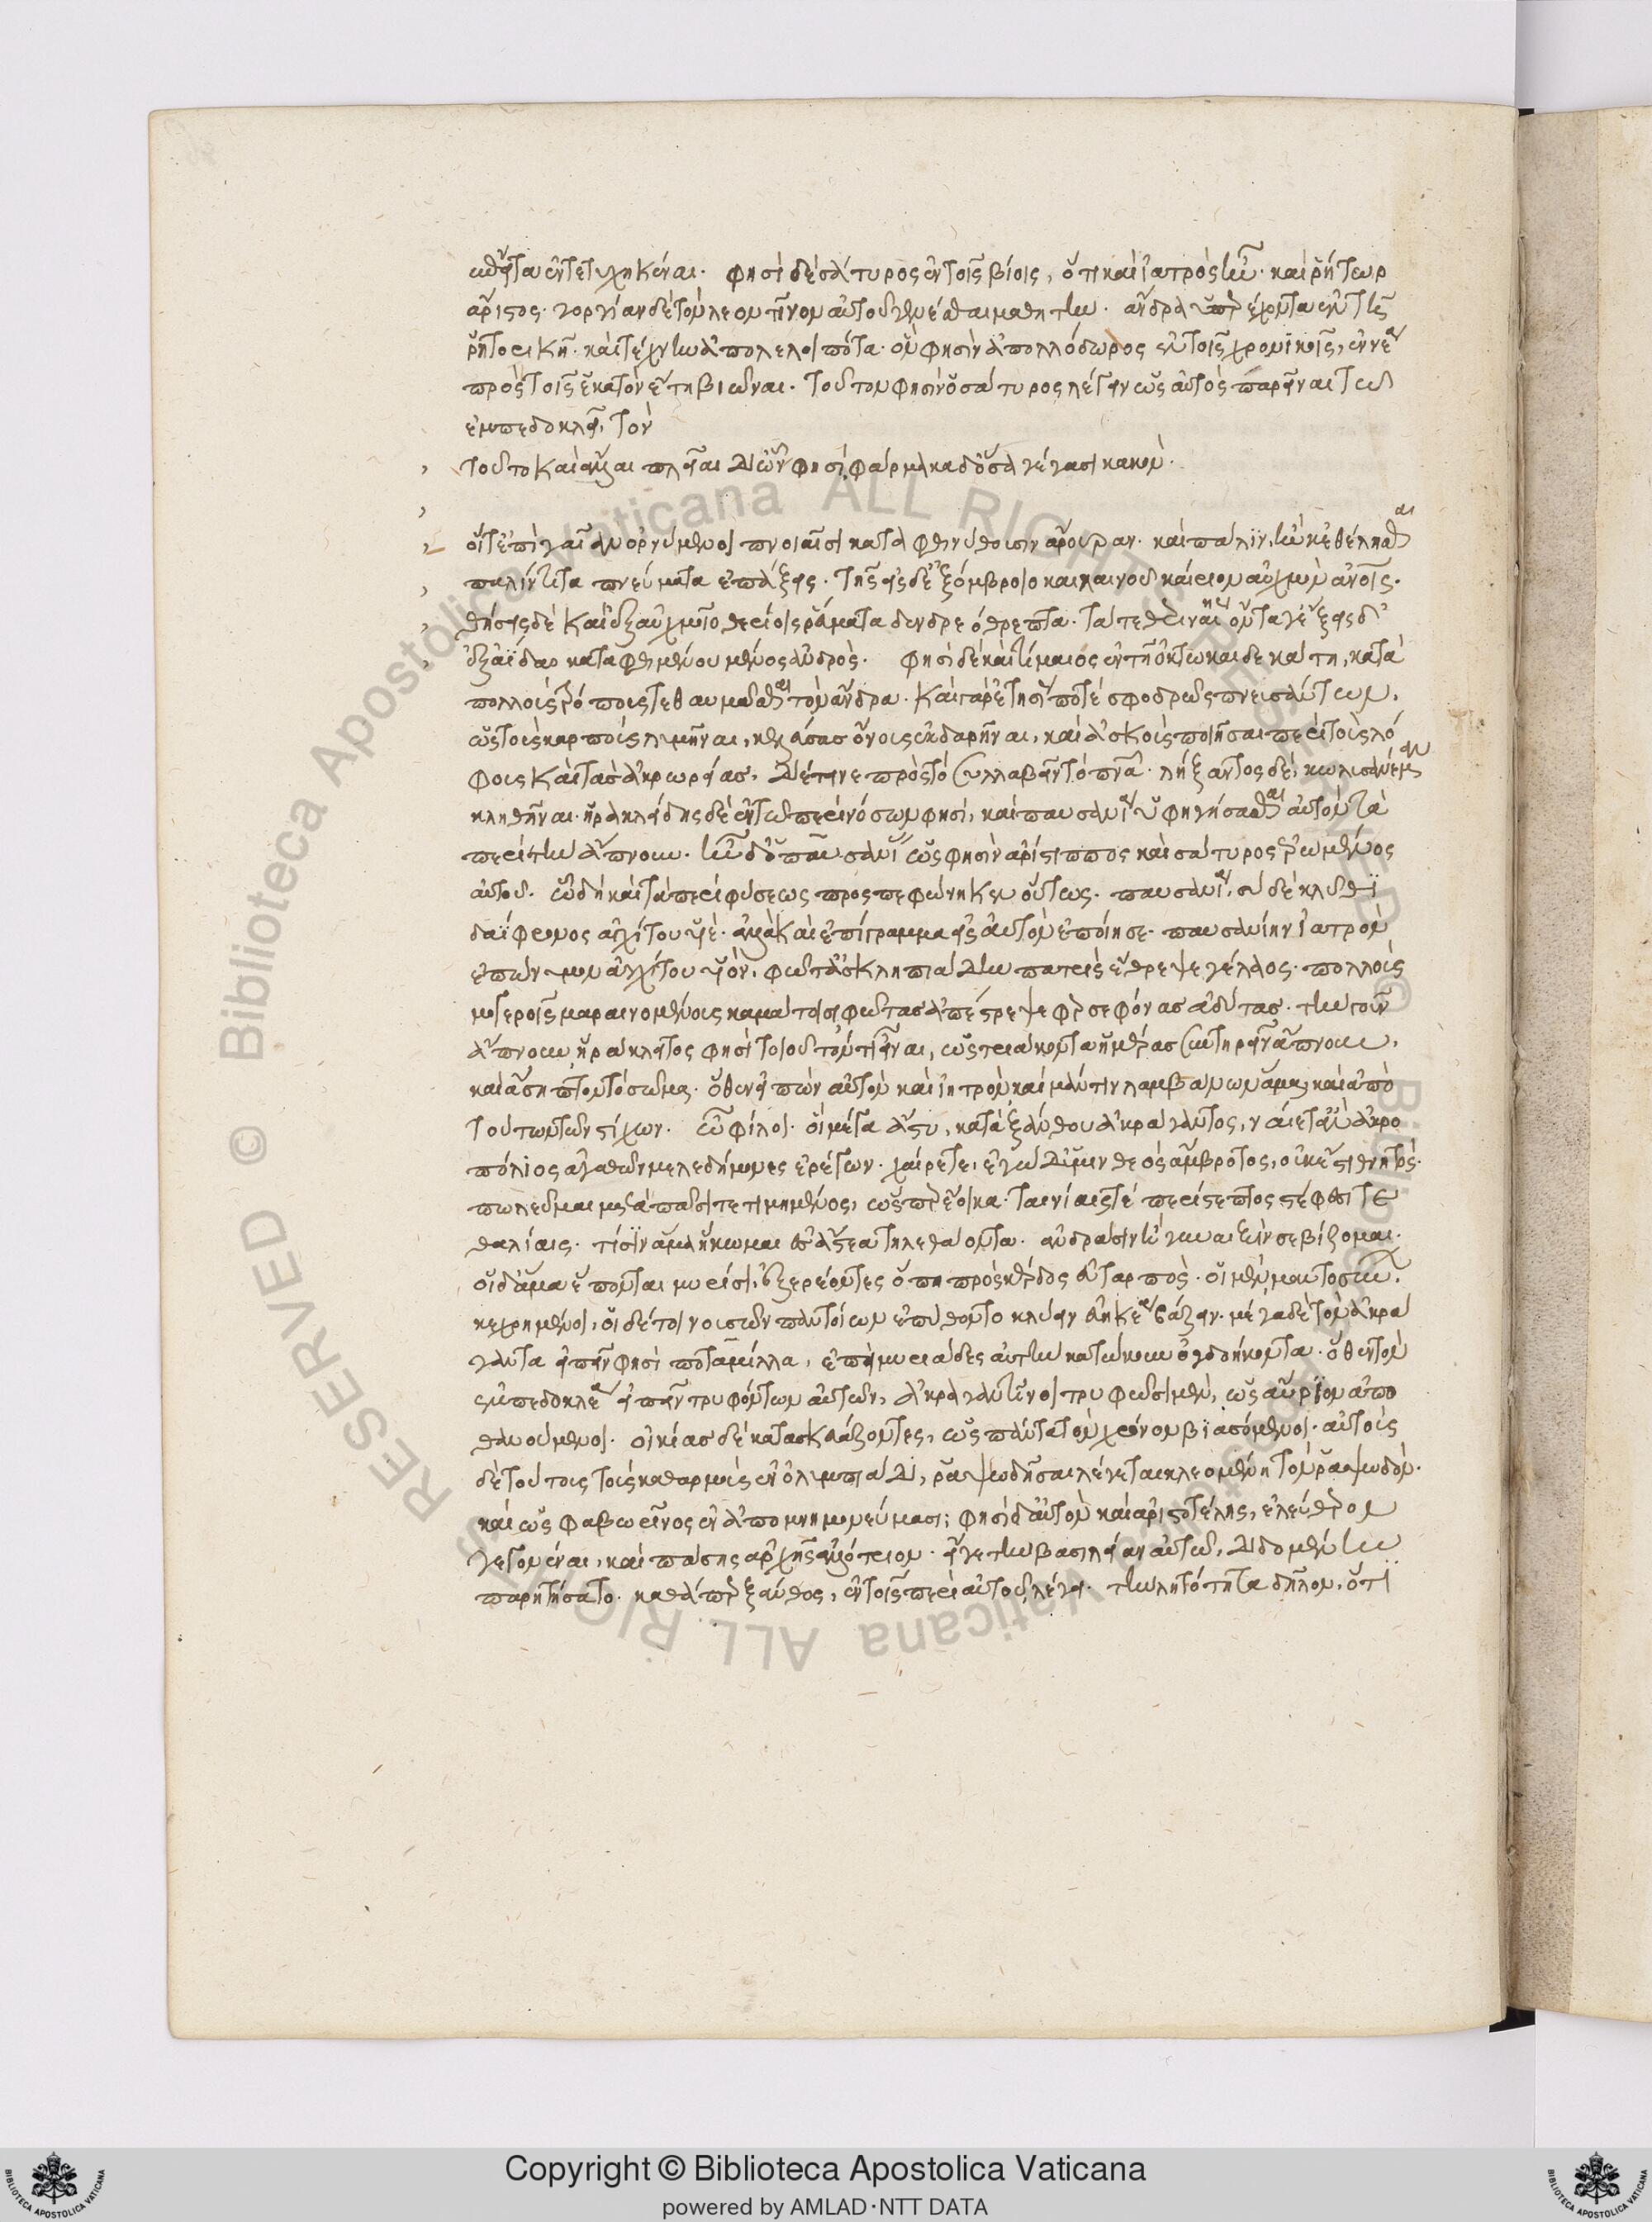 αὐτα ἐντετυχηκέναι. φησὶ δὲ σάτυρος ἐν τοῖς βίοις, ὅτι καὶ ἰατρὸς ἦν. καὶ ῥήτωρ
ἄριστος. γοργίαν δὲ τὸν λεοντῖνον αὐτοῦ γενέσθαι μαθητὴν. ἄνδρα ὑπερέχοντα ἐν τῆ
ῥητορικῆ. καὶ τέχνην ἀπολελοιπότα. ὅν φησὶν ἀπολλόδωρος ἐν τοῖς χρονικοῖς, ἐννέα
πρὸς τοῖς ἑκατὸν ἔτη βιῶναι. τοῦτον φησὶν ὁ σάτυρος λέγειν ὡς αὐτὸς παρείη τῶ
ἐμπεδοκλεῖ, τὸν
τοῦτο καὶ πλεῖσται δι' ὧν φησί, φάρμακα δ' ὅσα γεγάασι κακὸν.
οἵτ' ἐπὶ γαῖαν ὀρνύμενοι πνοιαῖσι καταφθινύθουσιν ἄρουραν. καὶ πάλιν, ἢν κε θέλησθαι
παλίντιτα πνεύματα ἐπάξεις. τῆς εἰς δ' ἐξ ὄμβροιο κελαινοῦ καίριον αὐχμὸν ἀνοῖς.
θήσεις δὲ καὶ ἐξ αὐχμοῖο θερείοις ῥάματα δενδρεόθρεπτα. τά τε θειναιήσονται ἄξεις δ'
ἐξ ἀίδαο καταφθιμένου μένος ἀνδρὸς. φησὶ δὲ καὶ τίμαιος ἐν τῆ ὀκτωκαιδεκάτη, κατὰ
πολλοὺς τρόπους τεθαυμάσθαι τὸν ἄνδρα. καὶ γὰρ ἐτησίων ποτὲ σφοδρῶς πνευσάντων,
ὡς τοὺς καρποὺς λυμῆναι, κελεύσας ὄνους ἐκδαρῆναι, καὶ ἀσκοὺς ποιῆσαι περὶ τοὺς λό
φους καὶ τὰς ἀκρωρείας, διέτεινε πρὸς τὸ συλλαβεῖν τὸ πνεῦμα. λήξαντος δὲ, κωλυσανέμαν
κληθῆναι. ἡρακλείδης δὲ ἐν τῶ περὶ νόσων φησὶ, καὶ παυσανία ὑφηγήσασθαι αὐτὸν τὰ
περὶ τὴν ἄπνουν. ἦν δ' ὁ παυσανίας ὥς φησὶν ἀρίστιππος καὶ σάτυρος ἐρώμενος
αὐτοῦ. ὧ δὴ καὶ τὰ περὶ φύσεως προσπεφώνηκεν οὕτως. παυσανία, σὺ δὲ κλῦθι
δαΐφρονος ἀγχίτου υἱὲ. ἀλλὰ καὶ ἐπίγραμμα εἰς αὐτὸν ἐποίησε. παυσανίην ἰατρὸν
ἐπώνυμον ἀγχίτου υἱὸν, φῶτ' ἀσκληπιάδην πατρὶς ἔθρεψε γέλας. πολλοὺς
μογεροῖς μαραινομένους καμάτοισι φῶτας ἀπέστρεψε φερσεφόνας ἀδύτας. τὴν γοῦν
ἄπνουν ἡράκλειτος φησὶ τοιοῦτόν τι εἶναι, ὡς τριάκοντα ἡμέρας συντηρεῖν ἄπνουν,
καὶ ἄσηπτον τὸ σῶμα. ὅθεν εἰπὼν αὐτὸν καὶ ἰητρὸν καὶ μάντιν λαμβάνων ἅμα, καὶ ἀπὸ
τούτων τῶν στίχων. ὦ φίλοι. οἳ μέγα ἄστυ, κατὰ ξανθοῦ ἀκράγαντος, ναίετ' ἀν' ἄκρα
πόλιος ἀγαθῶν μελεδήμονες ἔργων. χαίρετε, ἐγὼ δ' ὔμιν θεὸς ἄμβροτος, οὐκέτι θνητὸς.
πωλεῦμαι μετὰ πᾶσι τετιμημένος, ὥσπερ ἔοικα. ταινίαις τε περίστεπτος στέφεσί τε
θαλίαις. τοῖσιν ἅμ' ἂν ἵκωμαι ἐς ἄστεα τηλεθάοντα. ἀνδράσιν ἠδὲ γυναιξὶν σεβίζομαι.
οἱ δ' ἅμα ἕπονται μυρίοι, ἐξερέοντες ὅπη πρὸς κέρδος ἀταρπὸς. οἱ μὲν μαντοσυν.
κεχρημένοι, οἱ δέ τοι νούσων παντοίων ἐπύθοντο κλύειν εὐηκέα βάξιν. μέγα δὲ τὸν ἀκρά
γαντα εἰπεῖν φησὶ ποταμίλλα, ἐπεὶ μυριάδες αὐτὴν κατώκουν ὀγδοήκοντα. ὅθεν τὸν
ἐμπεδοκλέα εἰπεῖν τρυφόντων αὐτῶν, ἀκραγαντῖνοι τρυφῶσι μὲν, ὡς αὔριον ἀπο
θανούμενοι. οἰκίας δὲ κατασκευάζοντες, ὡς πάντα τὸν χρόνον βιασόμενοι. αὐτοὺς
δὲ τούτους τοὺς καθαρμοὺς ἐν ὀλυμπιάδι, ῥαψωδῆσαι λέγεται κλεομένη τὸν ῥαψωδὸν.
καὶ ὡς φαβωρῖνος ἐν ἀπομνημονεύμασι; φησὶ δ' αὐτὸν καὶ ἀριστοτέλης, ἐλεύθερον
γεγονέναι, καὶ πάσης ἀρχῆς ἀλλότριον. εἴγε τὴν βασιλείαν αὐτῶ, διδομένην
παρητήσατο. καθάπερ ξάνθος, ἐν τοῖς περὶ αὐτοῦ λέγει. τὴν λιτότητα δῆλον, ὅτι
Copyright © Biblioteca Apostolica Vaticana
powered by AMLAD·NTT DATA